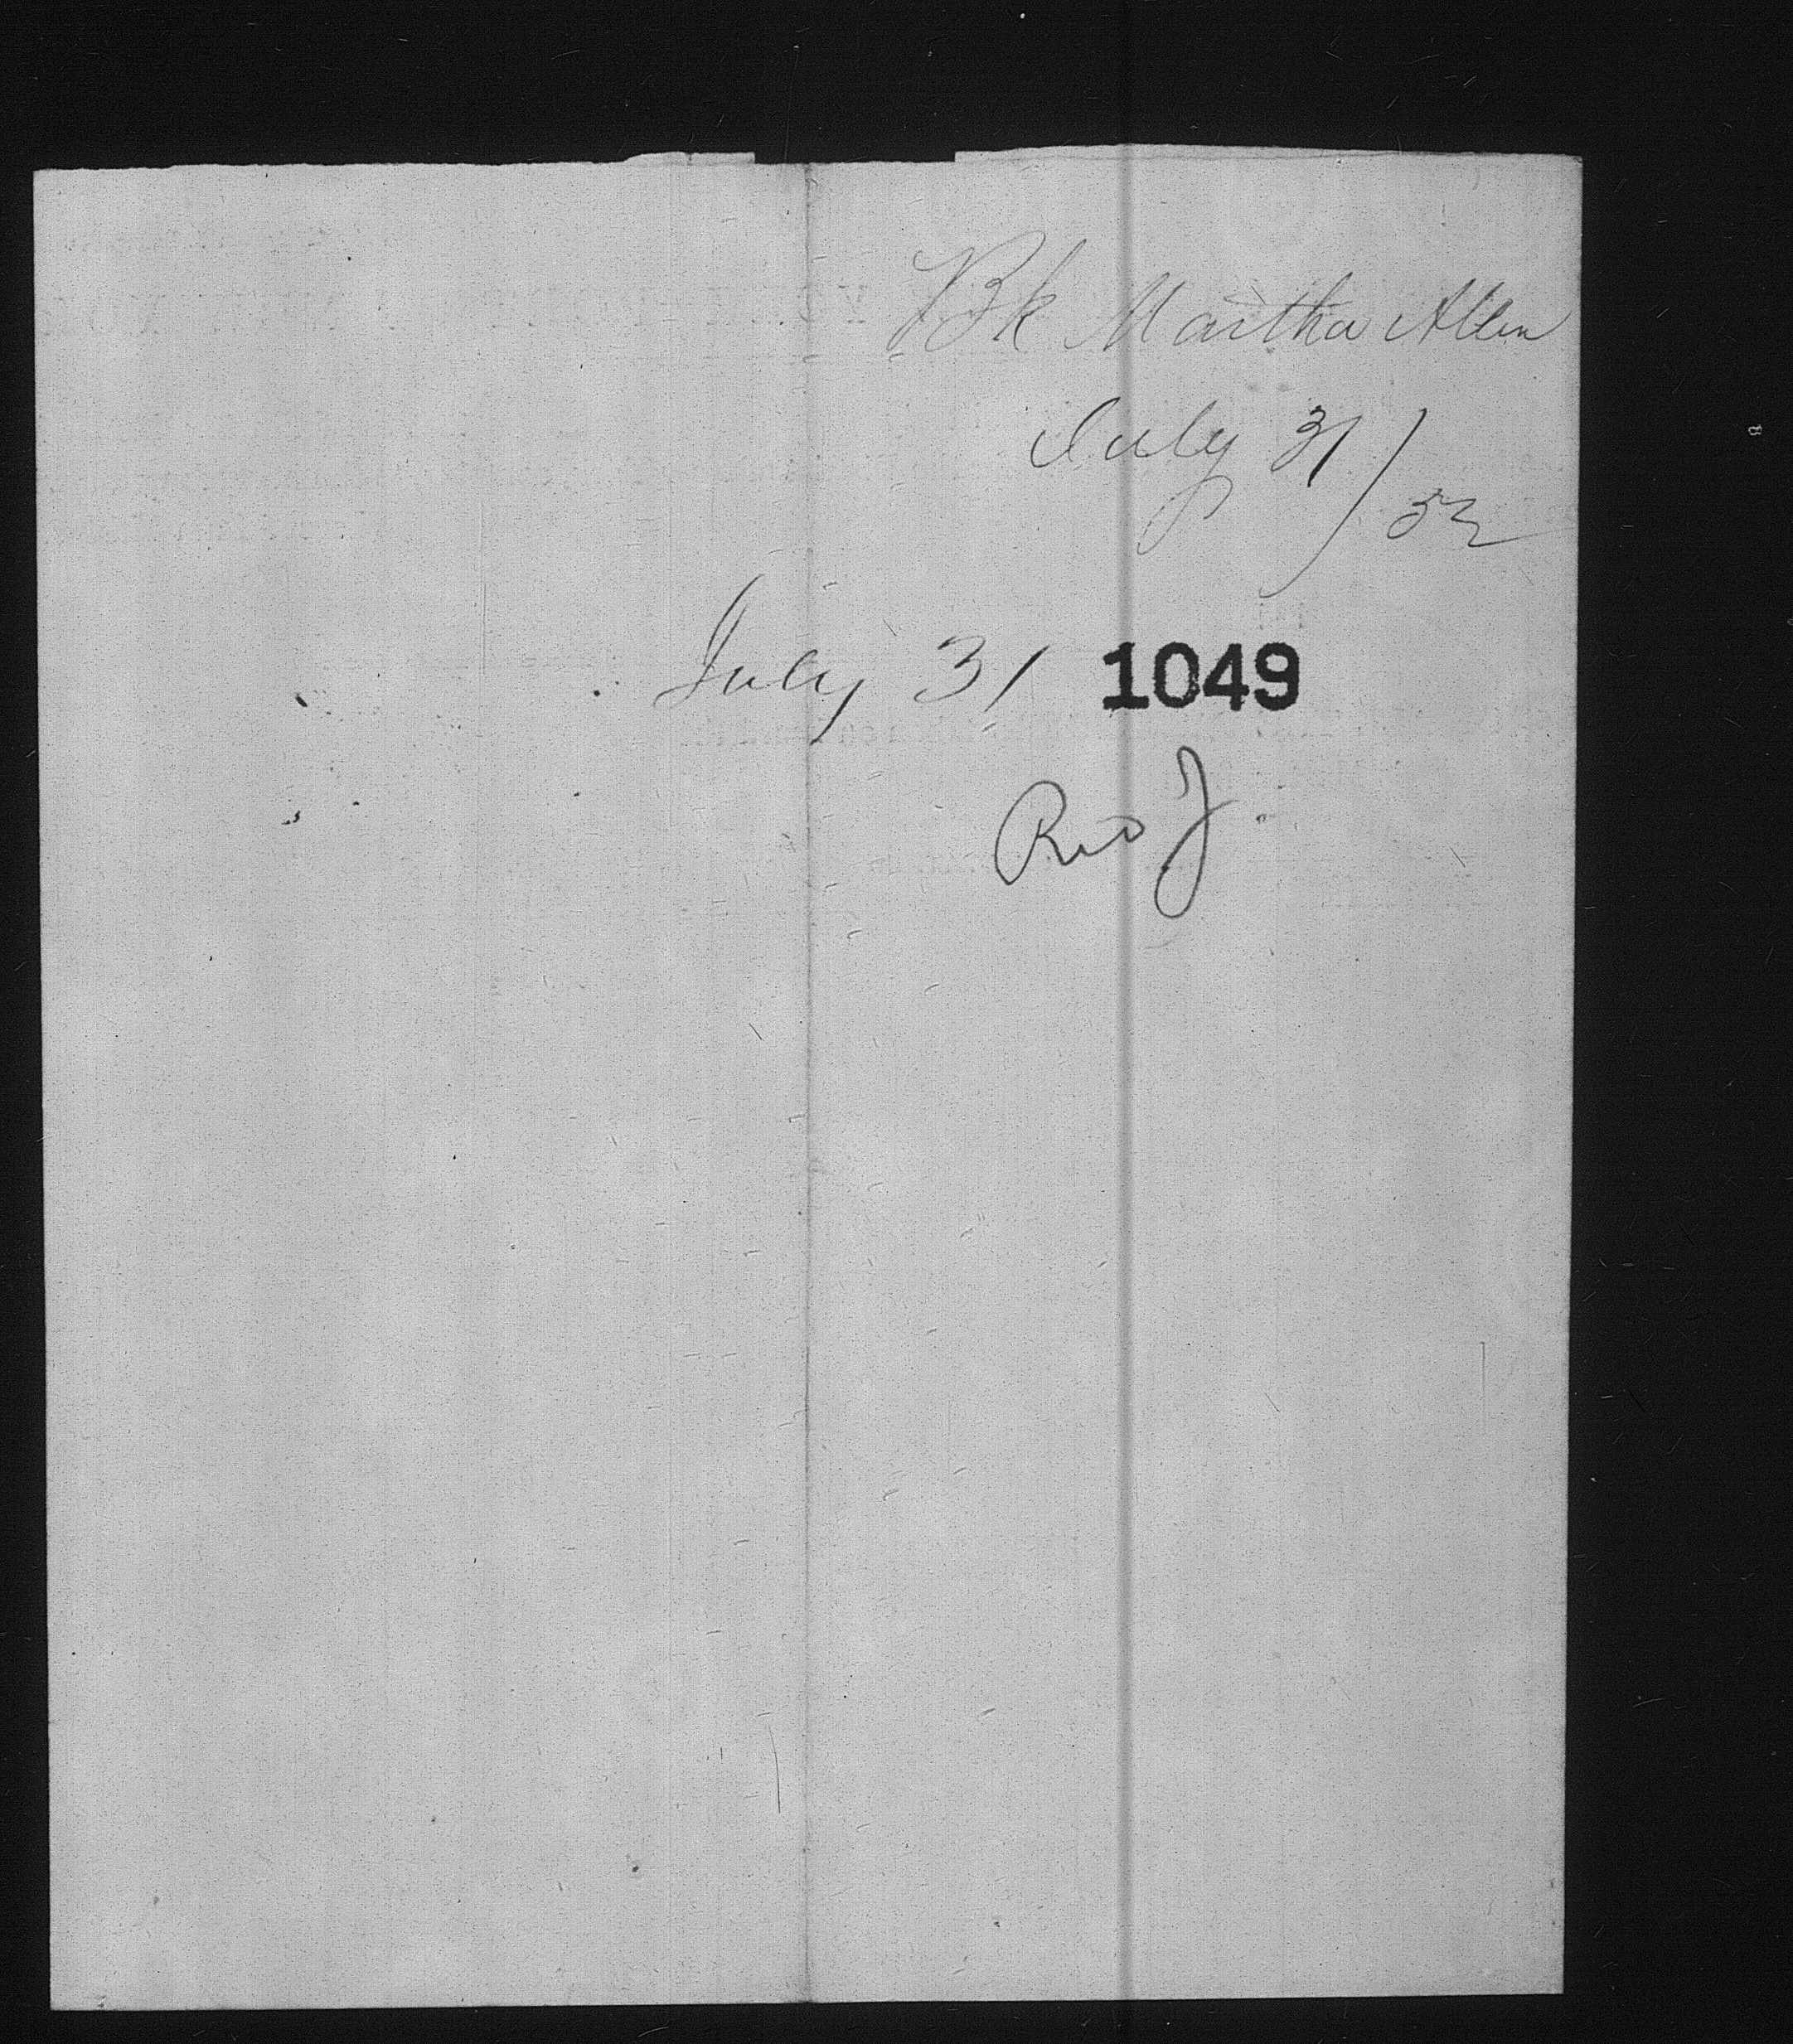 Bk Martha Allen
July 31/52
July 31 1049
Rio J.